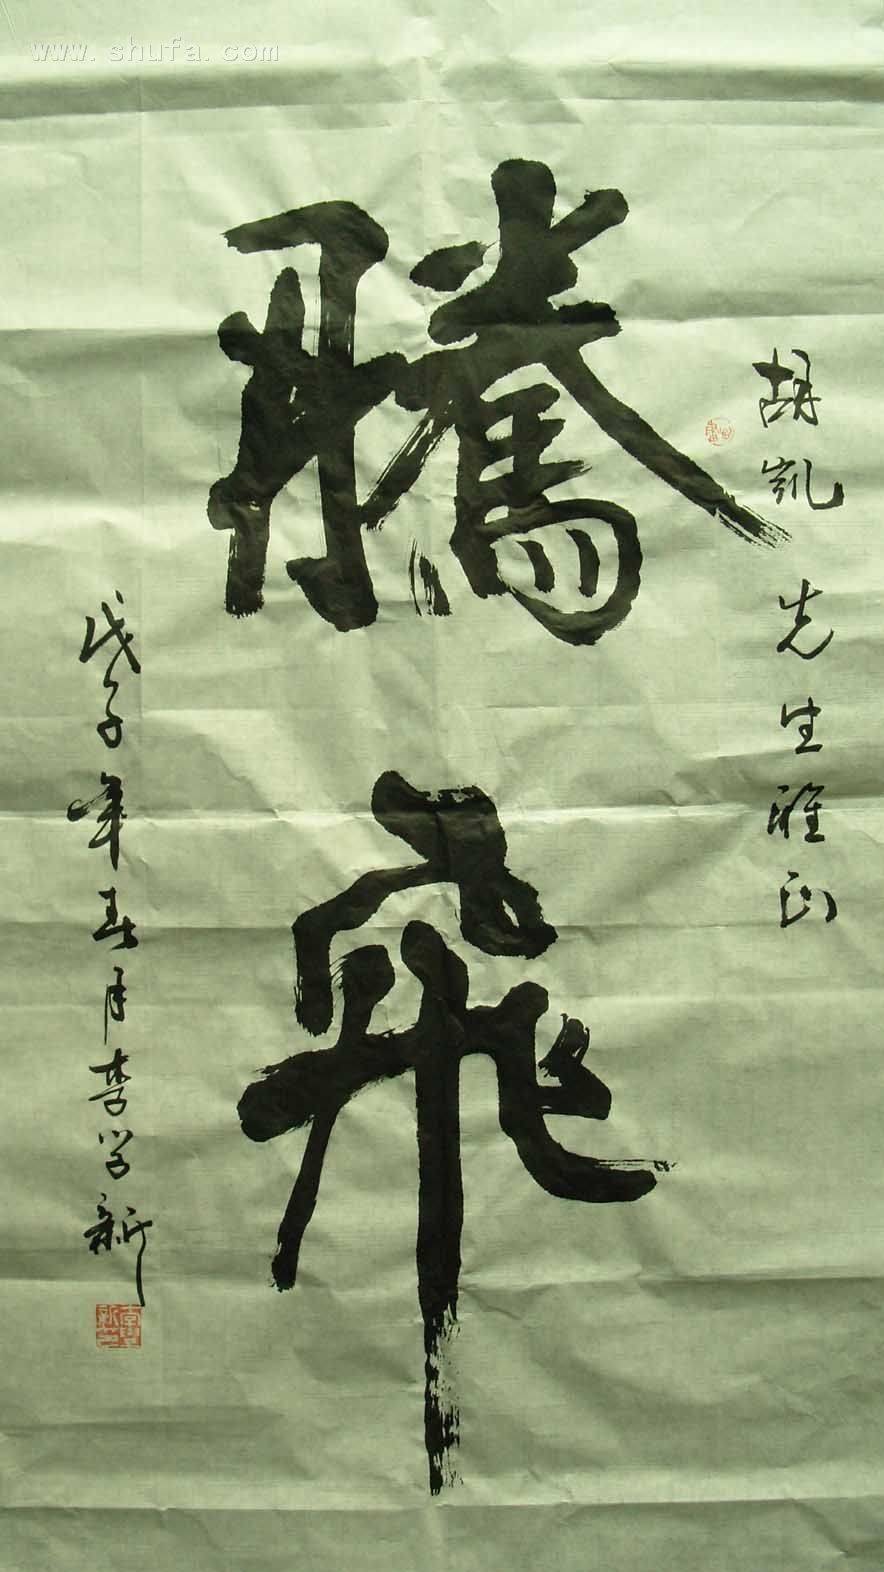 www.shufa.com
騰飛
胡凯先生雅正
戊子年春月李学新